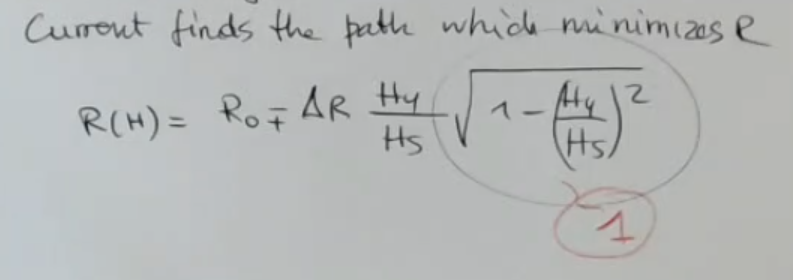 Current finds the path which minimizes R
R(H) = R₀ ∓ ΔR Hy/Hs √(1 - (Hy/Hs)²)
≃ 1